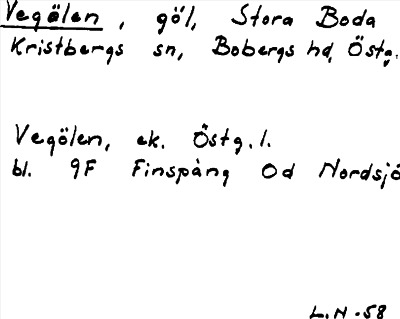 Vegölen, göl, Stora Boda
Kristbergs sn, Bobergs hd, Östg.
Vegölen, ek. Östg. l.
bl. 9F Finspång Od Nordsjö
L.N-58